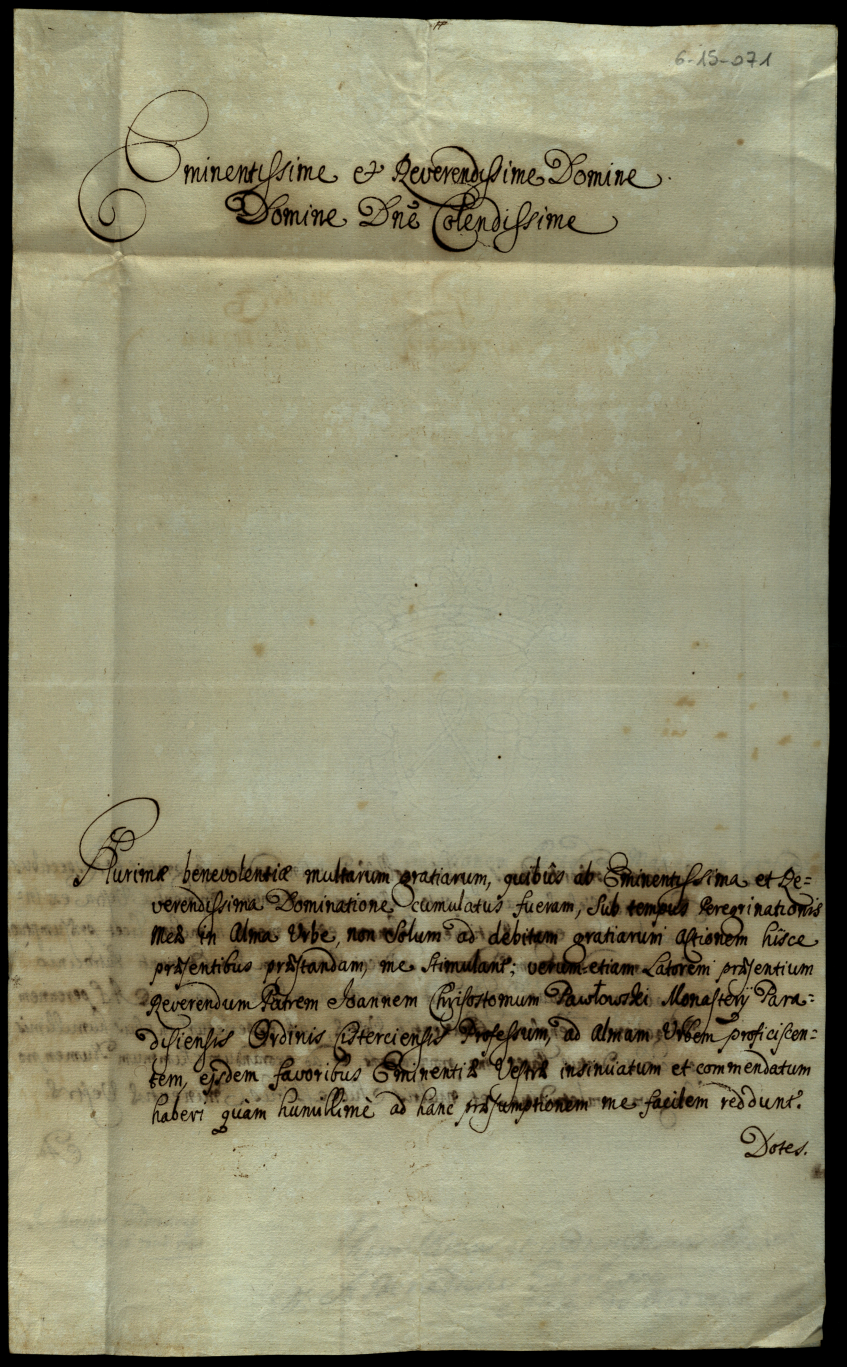 6-15-071
Eminentissime et Reverendissime Domine
Domine Dnē Colendissime
Plurimæ benevolentiæ multarum gratiarum, quibus ab Eminentissima et Re=
verendissima Dominatione cumulatus fueram, sub tempus Peregrinationis
meæ in Alma Urbe, non solum ad debitam gratiarum actionem hisce
præsentibus præstandam, me stimulant; verum etiam Latorem præsentium
Reverendum Patrem Joannem Chrisostomum Pawłowski Monasterij Para=
disiensis Ordinis Cisterciensis Professum, ad Almam Urbem proficiscen=
tem, ejsdem favoribus Eminentiæ Vestræ insinuatum et commendatum
haberi quam humillimè ad hanc præsumptionem me facilem reddunt.
Dotes.